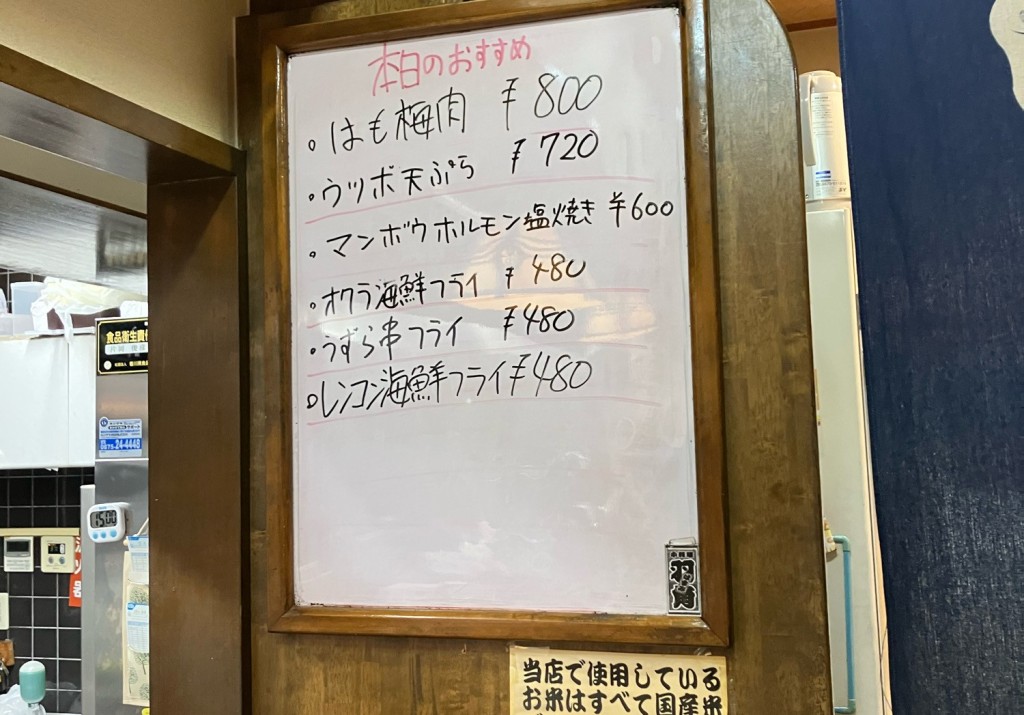 本日のおすすめ
・はも梅肉 ¥800
・ウツボ天ぷら ¥720
・マンボウホルモン塩焼き ¥600
・オクラ海鮮フライ ¥480
・うずら串フライ ¥480
・レンコン海鮮フライ ¥480
食品衛生責任
24-4448
15:00
当店で使用している
お米はすべて国産米